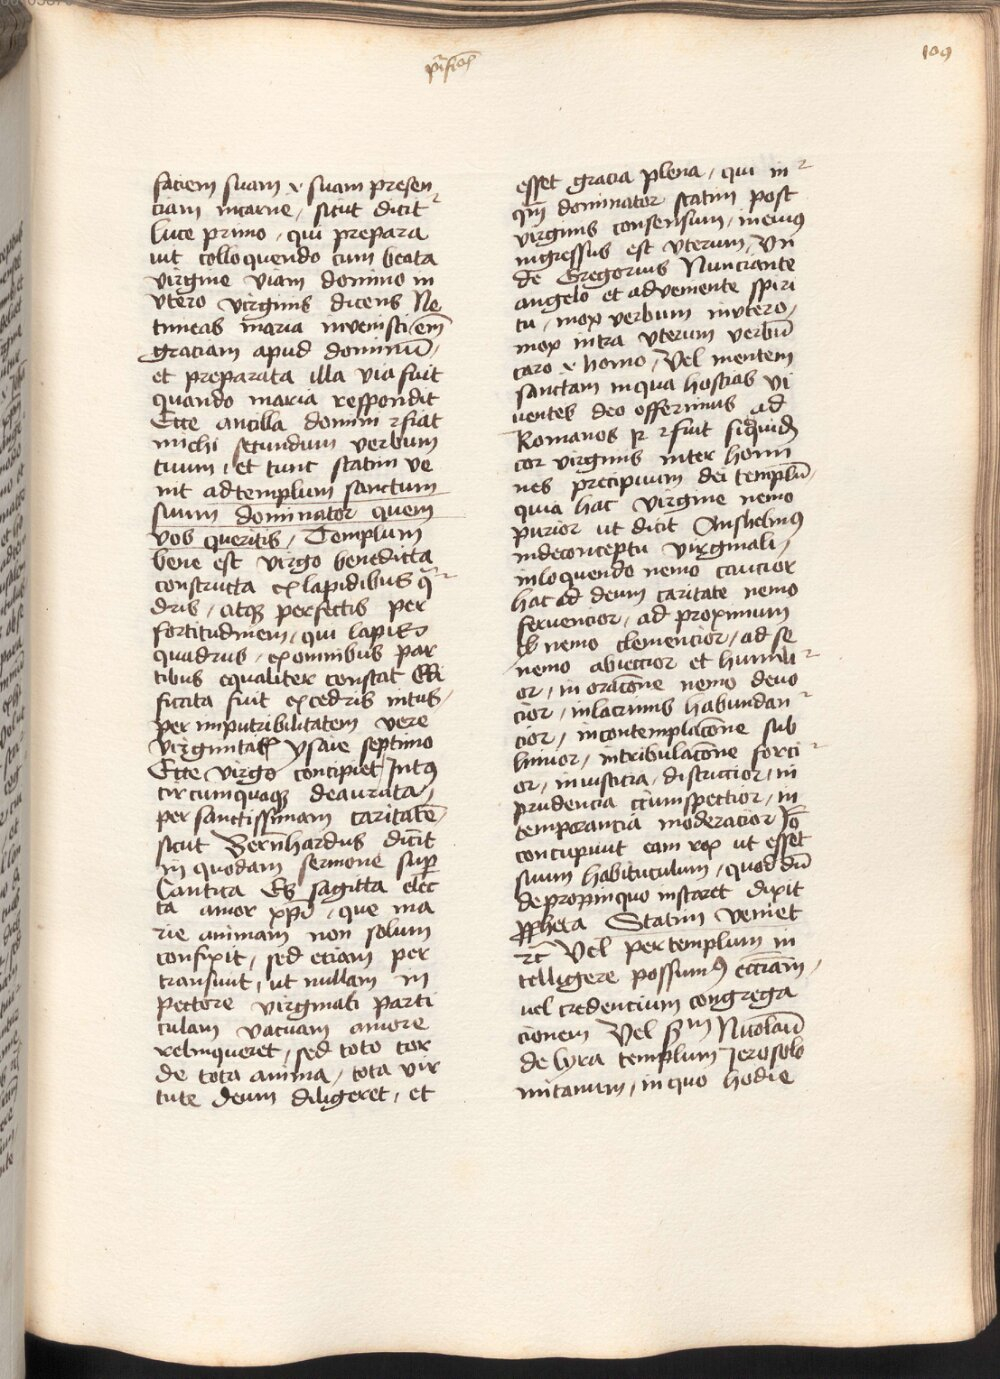 109
faciem suam et suam presen
ciam incarne, sicut dicit
luce primo, qui prepara
uit colloquendo cum beata
virgine viam domino in
vtero virginis dicens Ne
timeas maria invenisti em̄
graciam apud dominū,
et preparata illa via fuit
quando maria respondit
Ecce ancilla domini fiat
michi secundum verbum
tuum, et tunc statim ve
nit ad templum sanctum
suum dominator quem
vos queritis, Templum
bene est virgo benedicta
constructa ex lapidibus qᷓ
dris, atqꝫ perfectis per
fortitudinem, qui lapis
quadrus, ex omnibus par
tibus equaliter constat Edi
ficata fuit ex cedris intus,
per imputribilitatem vere
virginitatꝭ ysaie septimo
Ecce virgo concipiet Intꝰ
circumquaqꝫ deaurata,
per sanctissimam caritatē,
sicut Bernhardus dicit
in quodam sermone suꝑ
Cantica Est sagitta elec
ta amor xpī, que ma
rie animam non solum
confixit, sed eciam per
transiuit, ut nullam in
pectore virginali parti
culam vacuam amore
relinqueret, sed toto cor
de tota anima, tota vir
tute deum diligeret, et
esset gracia plena, qui in
qm̄ dominator statim post
virginis consensum, in eiuꝰ
ingressus est vterum, Vn
de Gregorius Nunciante
angelo et adveniente spiri
tu, mox verbum in vtero,
mox intra vterum verbū
caro et homo, Vel mentem
sanctam in qua hostias vi
uentes deo offerimus ad
Romanos fuit siquidē
cor virginis inter homi
nes precipuum dei templū,
quia hac virgine nemo
purior ut dicit Anshelmꝰ
in de conceptu virginali,
in loquendo nemo caucior
hac ad deum caritate nemo
feruencior, ad proximum
nemo clemencior, ad se
nemo abieccior et humili
or, in oracōne nemo deuo
cior, in lacrimis habundan
cior, in contemplacōne sub
limior, in tribulacōne forci
or, in iusticia, districcior, in
prudencia cc̄umspectior, in
temperancia moderacior Iō
concupiuit eam rex ut esset
suum habitaculum, quod dū
de propinquo instaret dixit
ꝓpheta Statim veniet
Vel per templum in
telligere possumꝰ ecc̄iam,
uel credencium congrega
cionem Vel sᵐ Nicolaū
de lyra templum Jerosolo
mitanum, in quo hodie